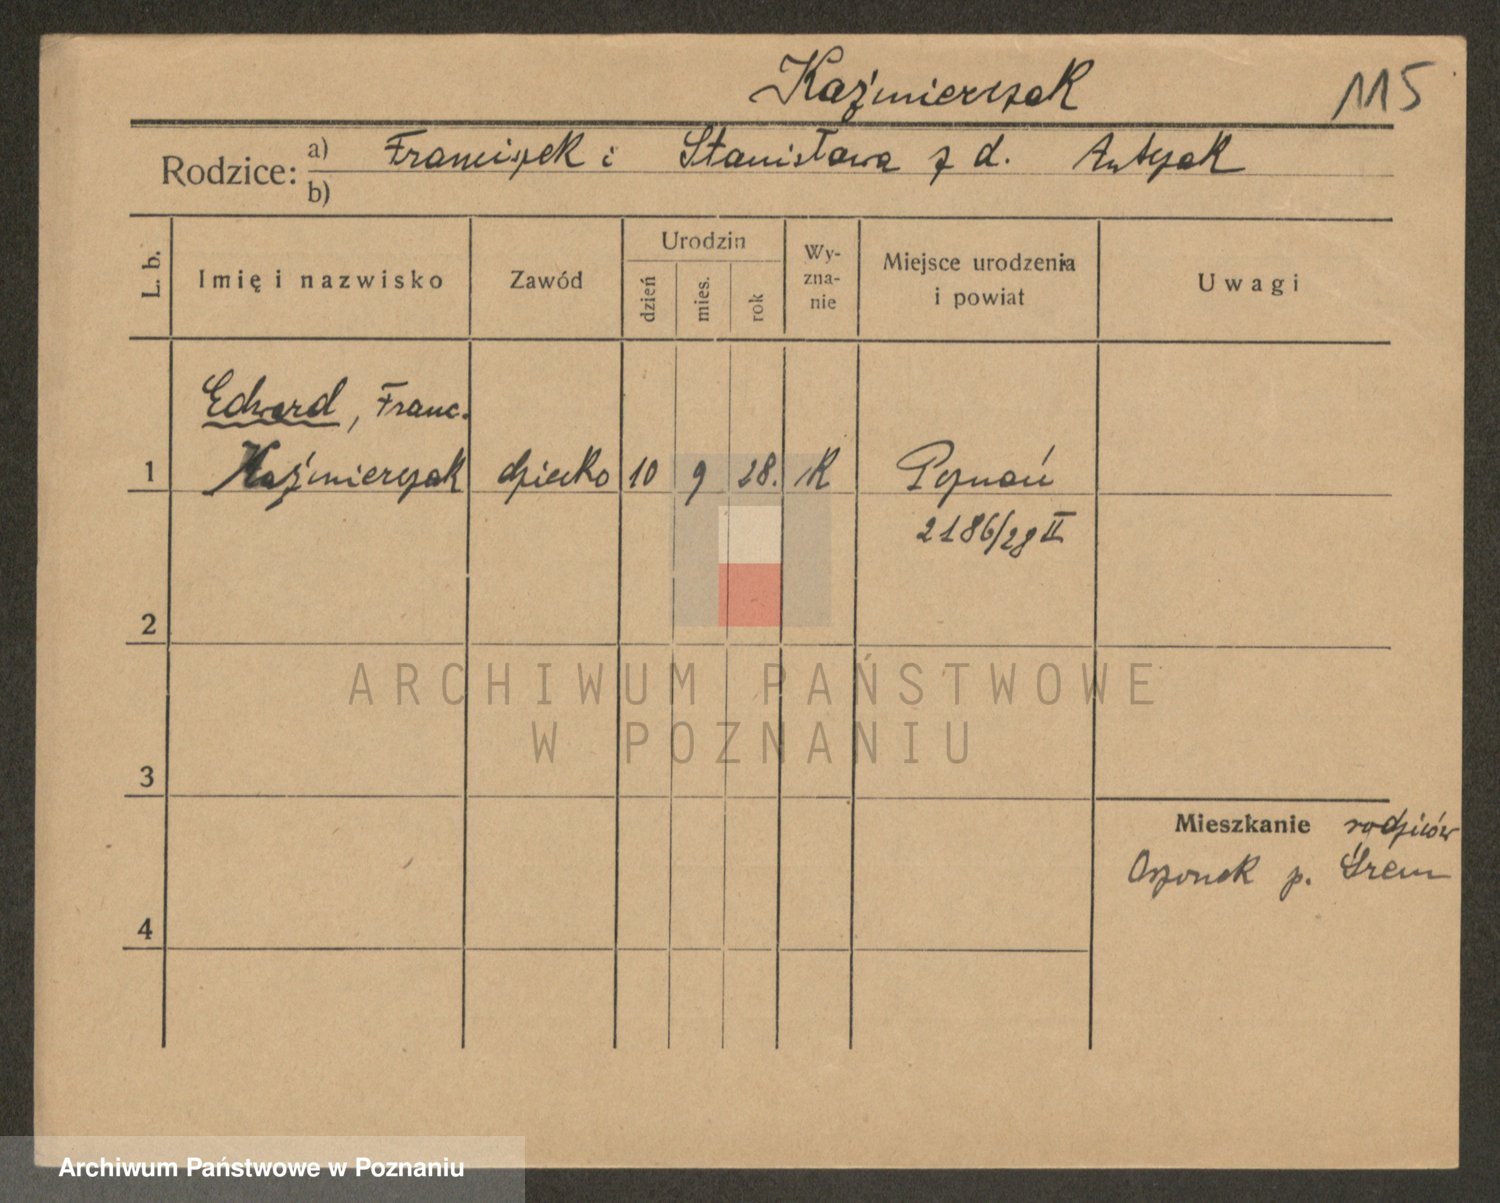 Kaźmierczak 115
Rodzice: a) Franciszek i Stanisława z d. Antczak
b)
L. b. Imię i nazwisko Zawód Urodzin dzień mies. rok Wy-zna-nie Miejsce urodzenia i powiat Uwagi
Edward, Franc.
1 Kaźmierczak dziecko 10 9 28. K Poznań
2186/28 II
2
3
Mieszkanie rodziców
p. Śrem
4
ARCHIWUM PAŃSTWOWE
W POZNANIU
Archiwum Państwowe w Poznaniu